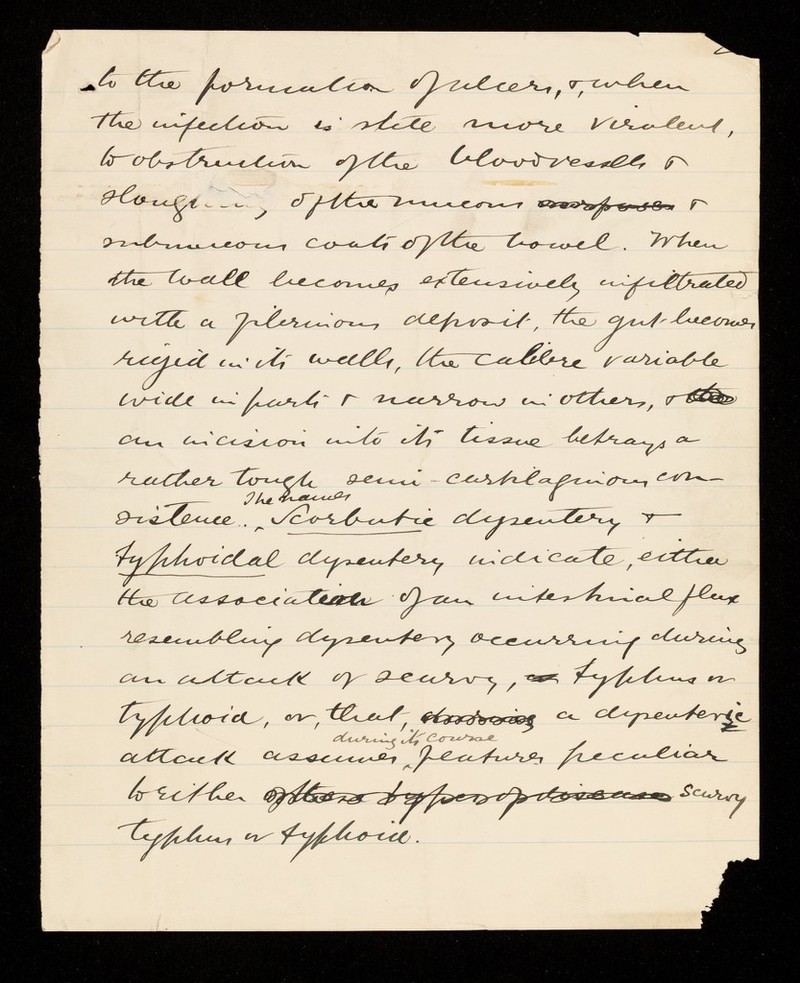 to the formation of ulcers, &, when
the infection is still more virulent,
to obstruction of the bloodvessells &
sloughing of the mucous &
submucous coats of the bowel. When
the wall becomes extensively infiltrated
with a fibrinous deposit, the gut becomes
rigid in its walls, the calibre variable
wide in parts & narrow in others, & the
an incision into its tissue betrays a
rather tough semi-cartilaginous con-
The names
sistence. Scorbutic dysentery &
typhoidal dysentery indicate, either
the association of an intestinal flux
resembling dysentery occurring during
an attack of scurvy, or typhus or
typhoid, or, that, a dysenteric
during its course
attack assumes features peculiar
to either of these types of disease scurvy
typhus or typhoid.